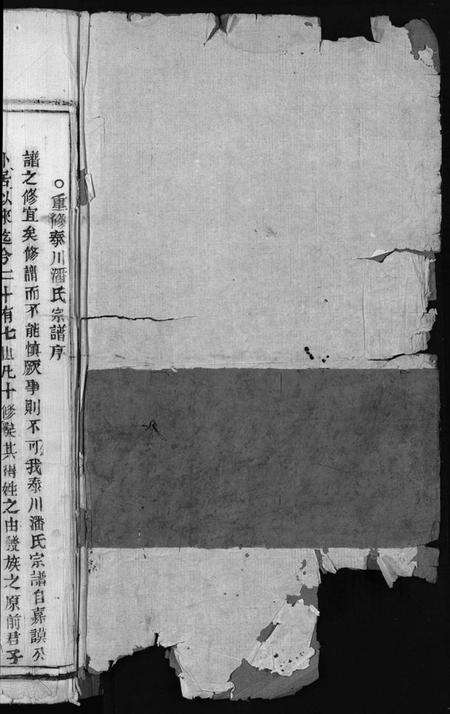 ○重修泰川潘氏宗譜序
譜之修宜矣修譜而不能慎厥事則不可我泰川潘氏宗譜自嘉謨公
以來迄今二十有七世凡十修矣其得姓之由發族之原前君子